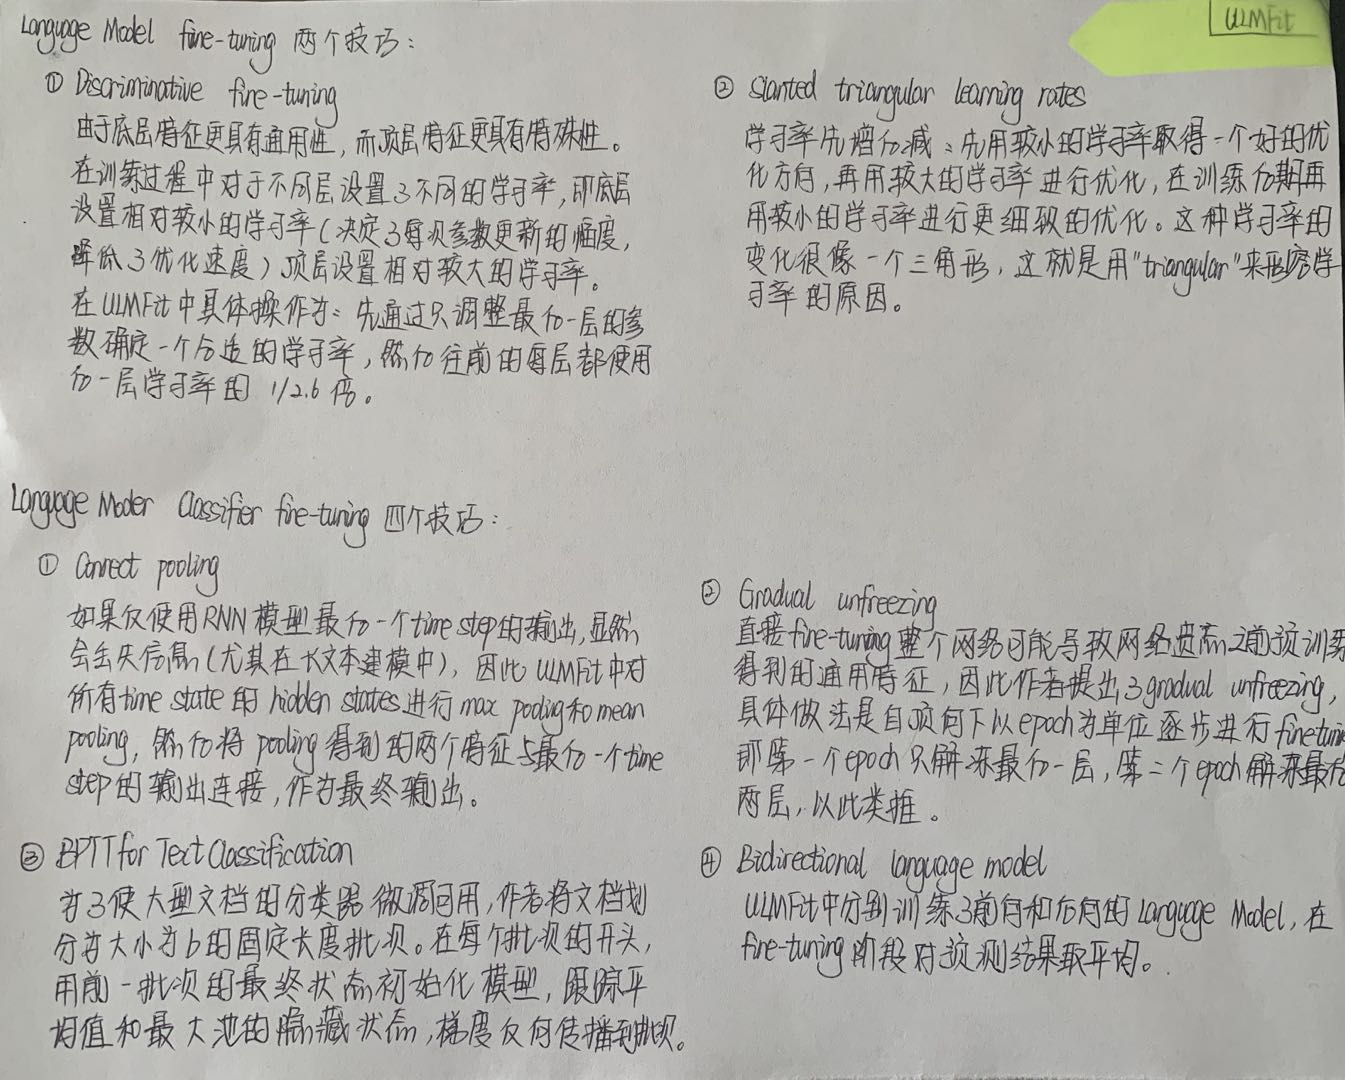 ULMFit
Language Model fine-tuning 两个技巧：
① Discriminative fine-tuning
由于底层特征更具有通用性，而顶层特征更具有特殊性。
在训练过程中对于不同层设置了不同的学习率，即底层
设置相对较小的学习率（决定了每次参数更新的幅度，
降低了优化速度）顶层设置相对较大的学习率。
在ULMFit中具体操作为：先通过只调整最后一层的参
数确定一个合适的学习率，然后往前的每层都使用
后一层学习率的 1/2.6 倍。
② Slanted triangular learning rates
学习率先增后减：先用较小的学习率取得一个好的优
化方向，再用较大的学习率进行优化，在训练后期再
用较小的学习率进行更细致的优化。这种学习率的
变化很像一个三角形，这就是用"triangular"来形容学
习率的原因。
Language Moder Classifier fine-tuning 四个技巧：
① Connect pooling
如果仅使用RNN模型最后一个time step的输出，显然
会丢失信息（尤其在长文本建模中），因此ULMFit中对
所有time state的hidden states进行max pooling和mean
pooling，然后将pooling得到的两个特征与最后一个time
step的输出连接，作为最终输出。
② Gradual unfreezing
直接fine-tuning整个网络可能导致网络遗忘之前预训练
得到的通用特征，因此作者提出了gradual unfreezing，
具体做法是自顶向下以epoch为单位逐步进行finetuning
即第一个epoch只解冻最后一层，第二个epoch解冻最后
两层，以此类推。
③ BPTT for Text Classification
为了使大型文档的分类器微调可用，作者将文档划
分为大小为b的固定长度批次。在每个批次的开头，
用前一批次的最终状态初始化模型，跟踪平
均值和最大池的隐藏状态，梯度反向传播到批次。
④ Bidirectional language model
ULMFit中分别训练了前向和后向的Language Model，在
fine-tuning阶段对预测结果取平均。